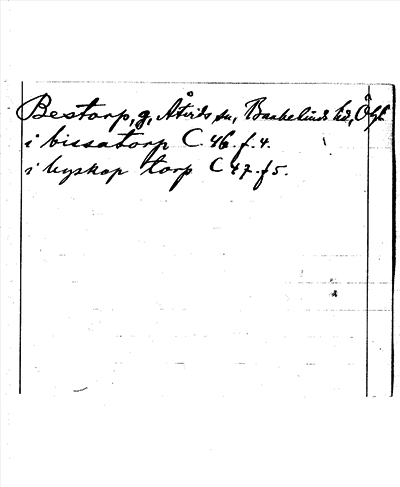 Bestorp, g, Åtvids sn, Bankekinds hd, Ög
i bissatorp C. 46. f. 4.
i byskop torp C 47. f 5.